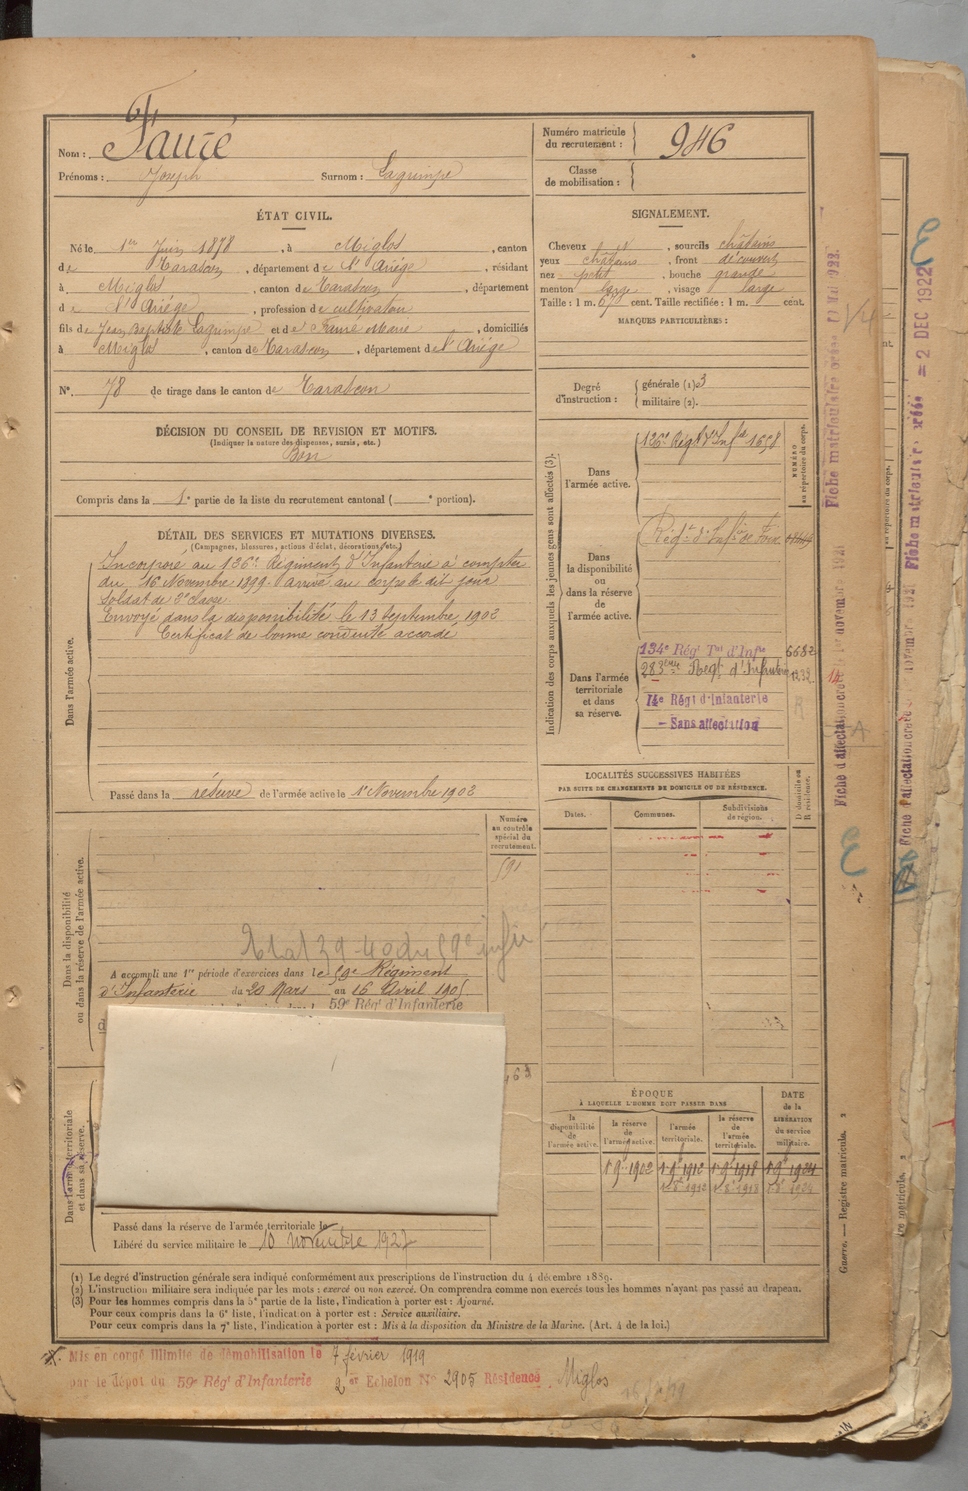 Nom : Fauré
Prénoms : Joseph Surnom : Lagrimpe
Numéro matricule du recrutement : 946
Classe de mobilisation :
ÉTAT CIVIL.
Né le 1er Juin 1878, à Miglos, canton
de Tarascon, département de l'Ariége, résidant
à Miglos, canton de Tarascon, département
de l'Ariége, profession de cultivateur
fils de Jean Baptiste Lagrimpe et de Fauré Marie, domiciliés
à Miglos, canton de Tarascon, département de l'Ariége
N° 78 de tirage dans le canton de Tarascon
SIGNALEMENT.
Cheveux chât, sourcils châtains
yeux châtains, front découvert
nez petit, bouche grande
menton large, visage large
Taille : 1 m. 67 cent. Taille rectifiée : 1 m. cent.
MARQUES PARTICULIÈRES :
Degré d'instruction :
générale (1) 3
militaire (2).
DÉCISION DU CONSEIL DE REVISION ET MOTIFS.
(Indiquer la nature des dispenses, sursis, etc.)
Bon
Compris dans la 1e partie de la liste du recrutement cantonal ( e portion).
DÉTAIL DES SERVICES ET MUTATIONS DIVERSES.
(Campagnes, blessures, actions d'éclat, décorations, etc.)
Dans l'armée active.
Incorporé au 126e Régiment d'Infanterie à compter
du 16 Novembre 1899. arrivé au corps le dit jour
Soldat de 2e classe
Envoyé dans la disponibilité le 13 Septembre 1902
Certificat de bonne conduite accordé
Passé dans la réserve de l'armée active le 1er Novembre 1902
Indication des corps auxquels les jeunes gens sont affectés (3).
NUMÉRO au répertoire du corps.
Dans l'armée active.
126e Régt d'Infie 1658
Dans la disponibilité ou dans la réserve de l'armée active.
Régt d'Infie de Foix
Dans l'armée territoriale et dans sa réserve.
134e Rég Tal d'Infie 6682
283ème Regt d'Infanterie 1232
14e Régt d'Infanterie
- Sans affectation
LOCALITÉS SUCCESSIVES HABITÉES
PAR SUITE DE CHANGEMENTS DE DOMICILE OU DE RÉSIDENCE.
Dates.
Communes.
Subdivisions de région.
D domicile ou R résidence.
Dans la disponibilité ou dans la réserve de l'armée active.
Numéro au contrôle spécial du recrutement.
591
A accompli une 1re période d'exercices dans le 59e Régiment
d'Infanterie du 20 Mars au 16 Avril 1905
59e Régt d'Infanterie
Dans l'armée territoriale et dans sa réserve.
Passé dans la réserve de l'armée territoriale le
Libéré du service militaire le 10 novembre 1927
ÉPOQUE
À LAQUELLE L'HOMME DOIT PASSER DANS
la disponibilité de l'armée active.
la réserve de l'armée active.
l'armée territoriale.
la réserve de l'armée territoriale.
DATE de la LIBÉRATION du service militaire.
1r 9bre 1902 1r 9bre 1912 1r 9bre 1918 1r 9bre 1924
1r 8bre 1912 1r 8bre 1918 1r 8bre 1924
(1) Le degré d'instruction générale sera indiqué conformément aux prescriptions de l'instruction du 4 décembre 1889.
(2) L'instruction militaire sera indiquée par les mots : exercé ou non exercé. On comprendra comme non exercés tous les hommes n'ayant pas passé au drapeau.
(3) Pour les hommes compris dans la 5e partie de la liste, l'indication à porter est : Ajourné.
Pour ceux compris dans la 6e liste, l'indication à porter est : Service auxiliaire.
Pour ceux compris dans la 7e liste, l'indication à porter est : Mis à la disposition du Ministre de la Marine. (Art. 4 de la loi.)
Mis en congé illimité de démobilisation le 7 février 1919
par le dépôt du 59e Régt d'Infanterie 2me Echelon No 2905 Résidence Miglos
Guerre. — Registre matricule. 2
Fiche matriculaire créée
Fiche d'affectation créée 1er novembre 1921
Fiche matriculaire créée = 2 DEC 1922
Fiche d'affectation créée novembre 1921